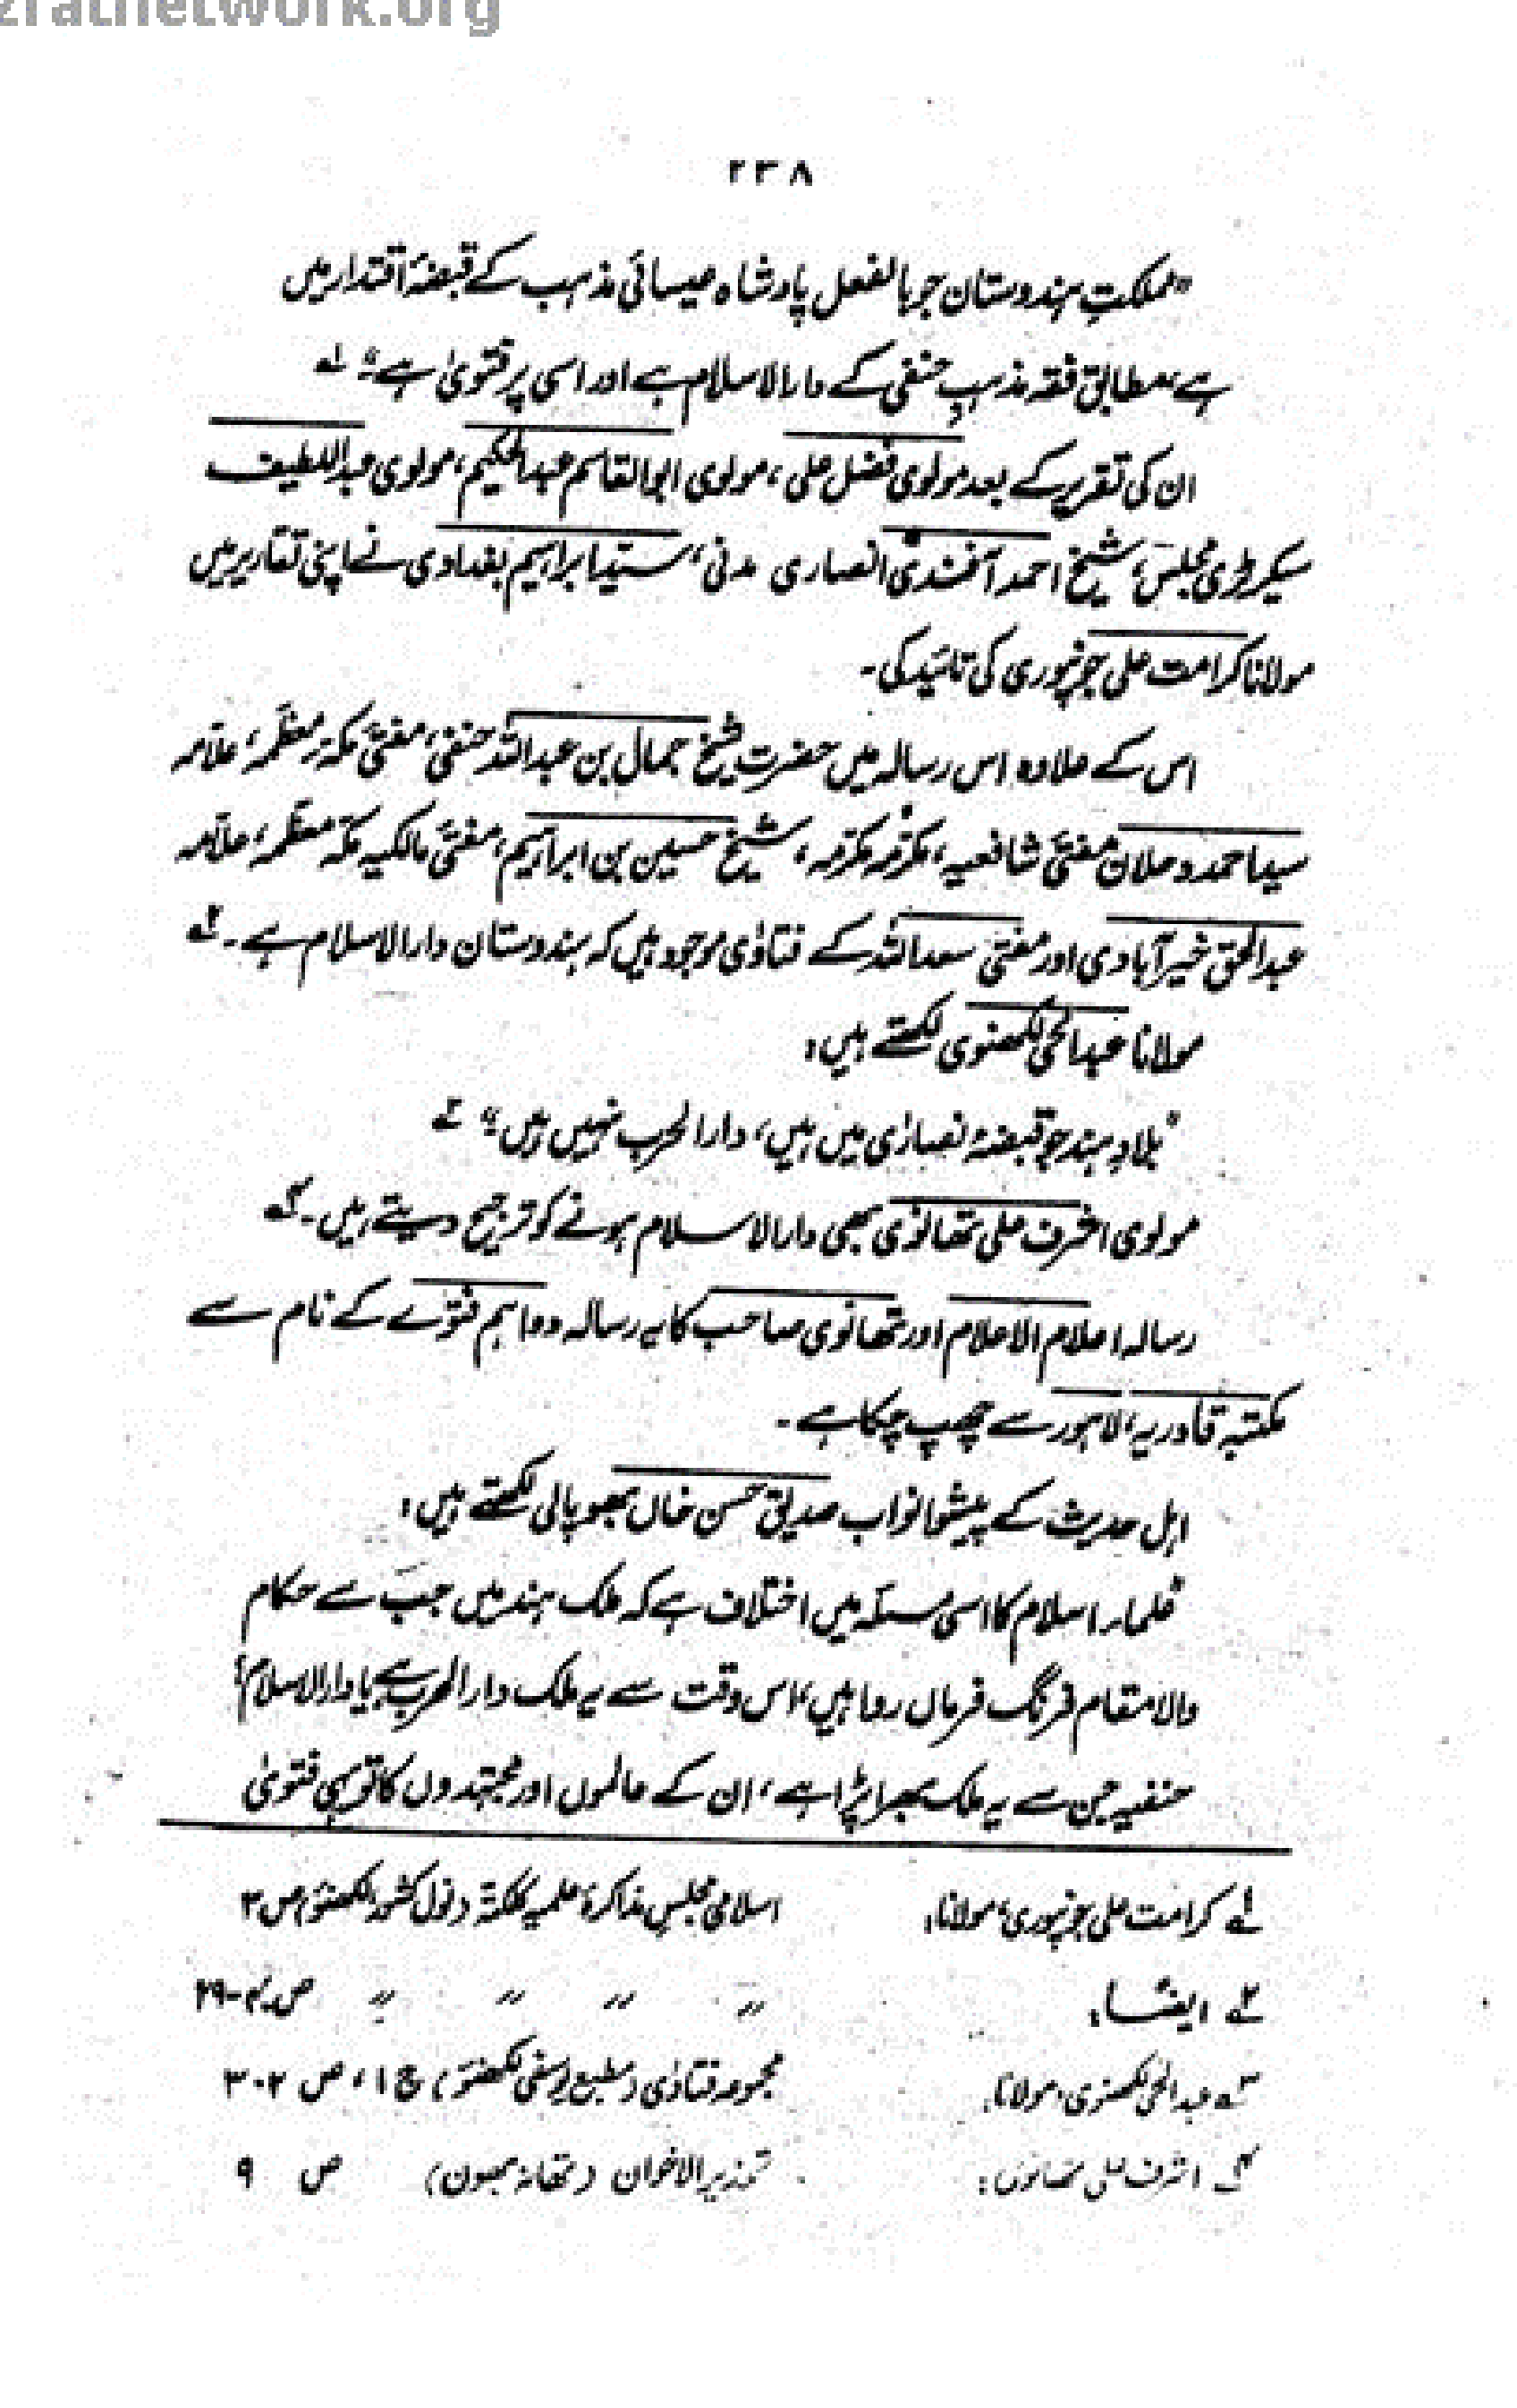 zratnetwork.org
۲۳۸
"مملکتِ ہندوستان جو بالفعل پادشاہ عیسائی مذہب کے قبضۂ اقتدار میں
ہے، مطابق فقہ مذہبِ حنفی کے دارالاسلام ہے اور اسی پر فتویٰ ہے۔" ۱؎
ان کی تقریر کے بعد مولوی فضل علی، مولوی ابوالقاسم عبدالحکیم، مولوی عبداللطیف
سیکرٹری مجلس، شیخ احمد آفندی انصاری مدنی، سید ابراہیم بغدادی نے اپنی تقاریر میں
مولانا کرامت علی جونپوری کی تائید کی۔
اس کے علاوہ اس رسالہ میں حضرت شیخ جمال بن عبداللہ حنفی، مفتیٔ مکہ معظمہ، علامہ
سید احمد دحلان مفتیٔ شافعیہ، مکرمہ مکرمہ، شیخ حسین بن ابراہیم، مفتیٔ مالکیہ مکہ معظمہ، علامہ
عبدالحق خیرآبادی اور مفتی سعداللہ کے فتاوٰی موجود ہیں کہ ہندوستان دارالاسلام ہے۔ ۲؎
مولانا عبدالحی لکھنوی لکھتے ہیں:
"بلادِ ہند جو قبضۂ نصارٰی میں ہیں، دارالحرب نہیں ہیں" ۳؎
مولوی اشرف علی تھانوی بھی دارالاسلام ہونے کو ترجیح دیتے ہیں۔ ۴؎
رسالہ اعلام الاعلام اور تھانوی صاحب کا یہ رسالہ دو اہم فتوے کے نام سے
مکتبہ قادریہ، لاہور سے چھپ چکا ہے۔
اہل حدیث کے پیشوا نواب صدیق حسن خاں بھوپالی لکھتے ہیں:
"علماء اسلام کا اسی مسئلہ میں اختلاف ہے کہ ملک ہند میں جب سے حکام
والا مقام فرنگ فرماں روا ہیں، اس وقت سے یہ ملک دارالحرب ہے یا دارالاسلام؟
حنفیہ جن سے یہ ملک بھرا پڑا ہے، ان کے عالموں اور مجتہدوں کا تو یہی فتویٰ
۱؎ کرامت علی جونپوری، مولانا: اسلامی مجلس مذاکرۂ علمیہ کلکتہ (نول کشور لکھنؤ) ص ۳
۲؎ ایضًا: 〃 〃 〃 〃 ص
۳؎ عبدالحی لکھنوی، مولانا: مجموعہ فتاوٰی (مطبع یوسفی لکھنؤ) ج ۱، ص ۳۰۲
۴؎ اشرف علی تھانوی: تحذیر الاخوان (تھانہ بھون) ص ۹